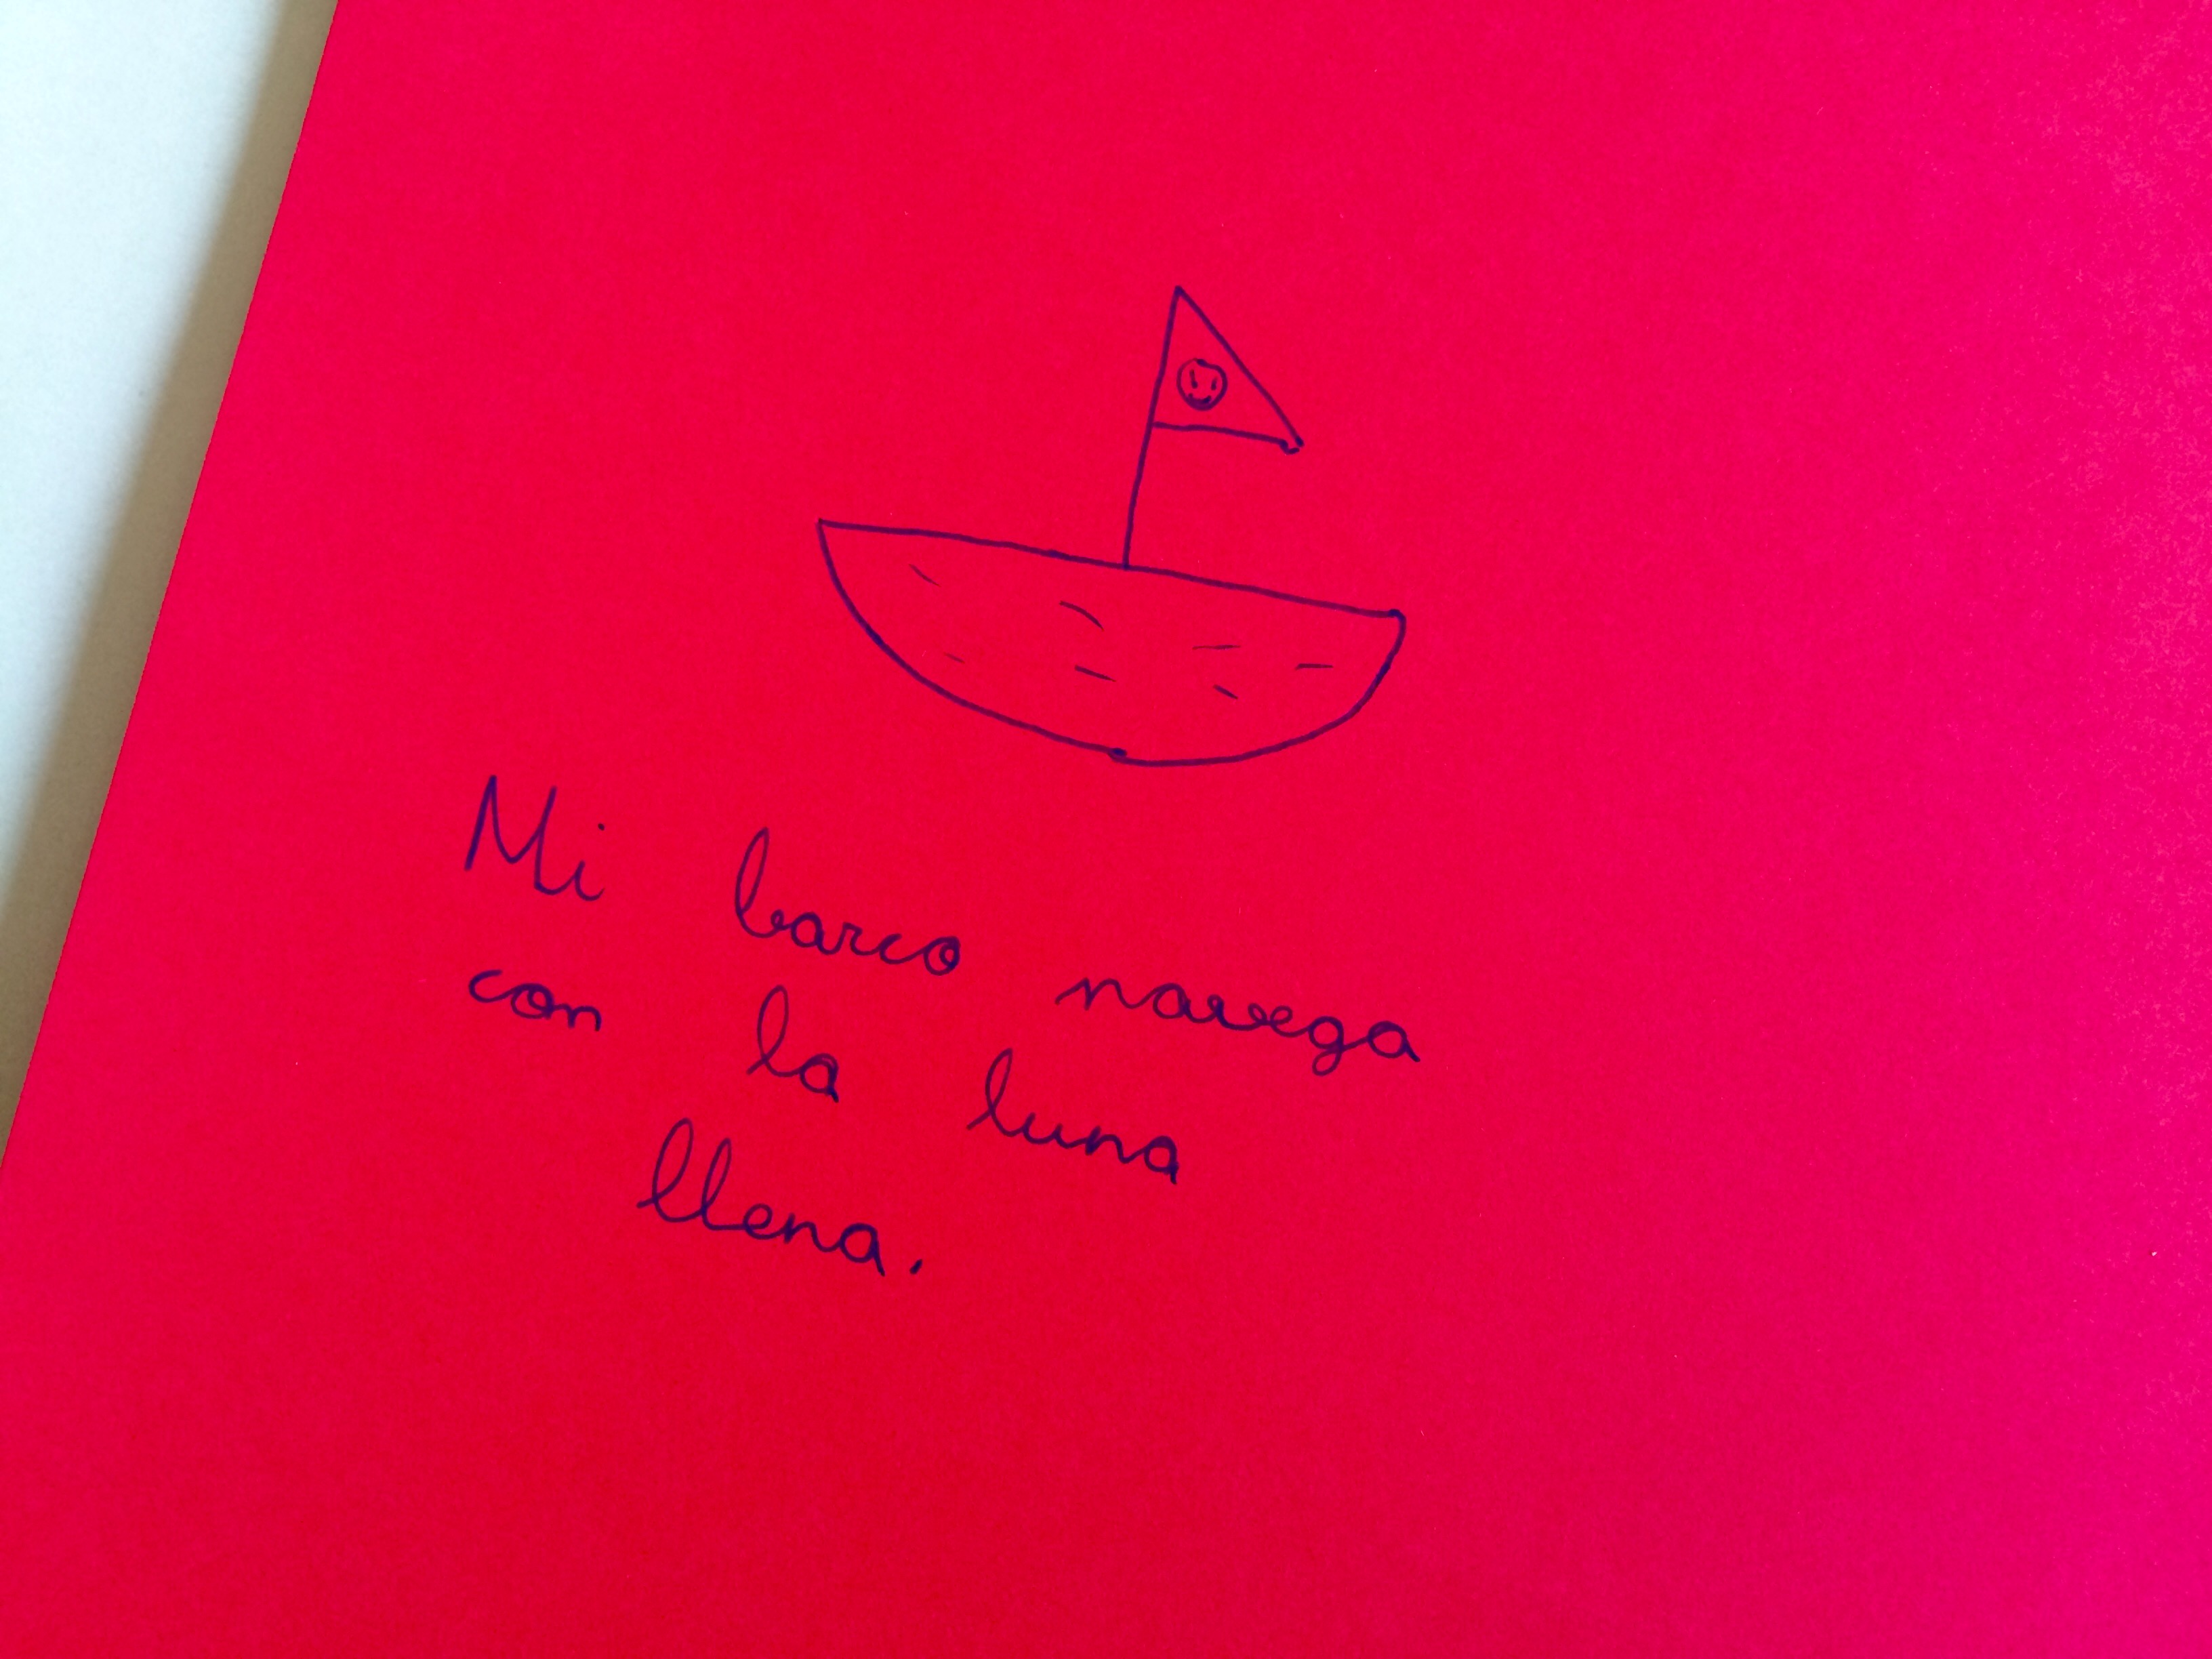 Mi barco navega
con la luna
llena.